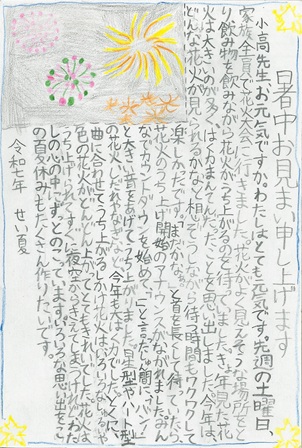 暑中お見まい申し上げます
小高先生、お元気ですか。わたしはとても元気です。先週の土曜日、
家族全員で花火大会に行きました。花火がよく見えそうな場所をと
り、飲み物を飲みながら花火がうち上がるのを待っていました。去年見た花
火は大きいのが多く、はく力まんてんだったことを思い出しました。今年は
どんな花火が見られるかなと想ぞうしながら待つ時間もワクワクして
楽しかったです。まだかな、と首を長くして待っていたら、
花火のうち上げ開始のアナウンスがながれました。みん
なでカウントダウンを始め、一と言ったしゅん間、バーン!
と大きい音をあげてうち上がりました。星型やハート型
の花火、しだれやなぎなど 今年も
曲に合わせてうち上がるしかけ花火は、いろんな
色の花火がどんどん上がってとてもきれいでした。花火は
うち上げられてすぐに夜空からきえてしまうけれど、わた
しの心の中にずっとのこっています。いろいろな思い出をこ
の夏休みもたくさん作りたいです。
令和七年 せい夏